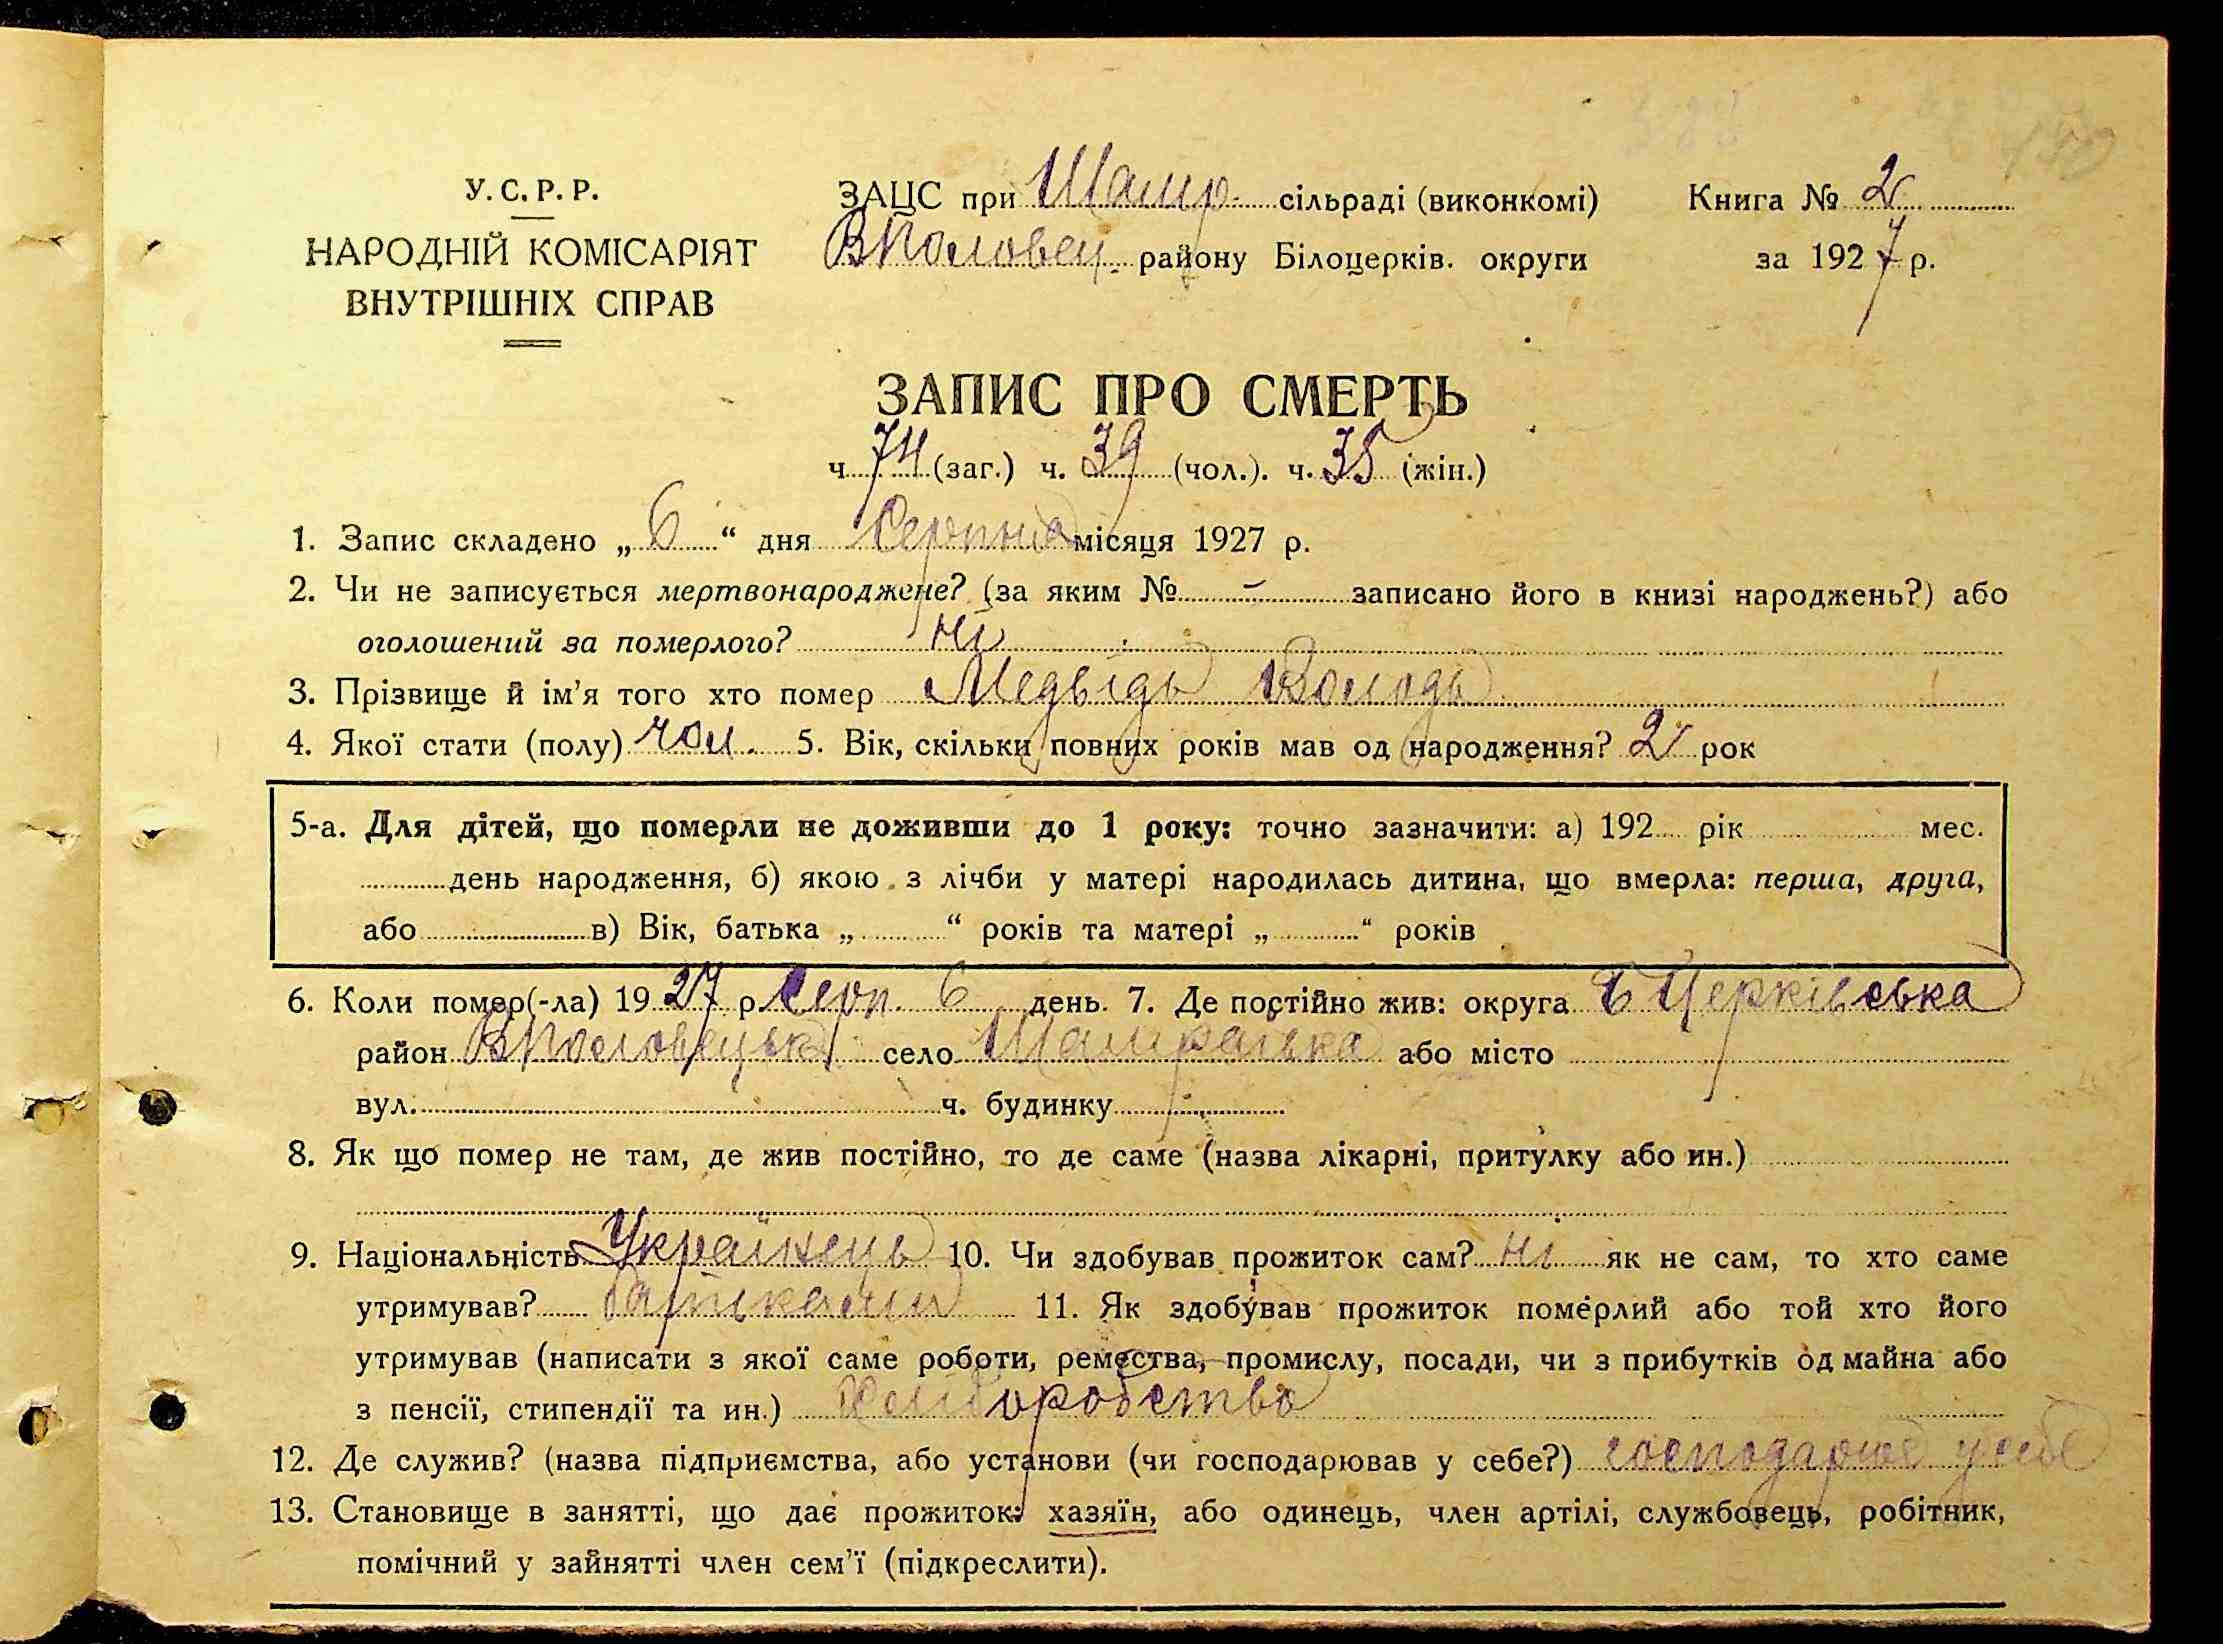 У. С. Р. Р.
НАРОДНІЙ КОМІСАРІЯТ
ВНУТРІШНІХ СПРАВ
ЗАЦС при Шамр. сільраді (виконкомі)
ВПоловец. району Білоцерків. округи
Книга № 2
за 1927 р.
ЗАПИС ПРО СМЕРТЬ
ч. 74 (заг.) ч. 39 (чол.). ч. 35 (жін.)
1. Запис складено „6“ дня Серпня місяця 1927 р.
2. Чи не записується мертвонароджене? (за яким № – записано його в книзі народжень?) або
оголошений за померлого? ні
3. Прізвище й ім’я того хто помер Медвідь Володь
4. Якої стати (полу) чол. 5. Вік, скільки повних років мав од народження? 2 рок
5-а. Для дітей, що померли не доживши до 1 року: точно зазначити: а) 192 рік мес.
день народження, б) якою з лічби у матері народилась дитина, що вмерла: перша, друга,
або в) Вік, батька „ “ років та матері „ “ років
6. Коли помер(-ла) 1927 р. Серп. 6 день. 7. Де постійно жив: округа БЦерківська
район ВПоловецьк село Шамраївка або місто
вул. ч. будинку
8. Як що помер не там, де жив постійно, то де саме (назва лікарні, притулку або ин.)
9. Національність Українець 10. Чи здобував прожиток сам? ні як не сам, то хто саме
утримував? батьками 11. Як здобував прожиток померлий або той хто його
утримував (написати з якої саме роботи, ремества, промислу, посади, чи з прибутків од майна або
з пенсії, стипендії та ин.) Хліборобство
12. Де служив? (назва підприємства, або установи (чи господарював у себе?) господарює у себе
13. Становище в занятті, що дає прожиток: хазяїн, або одинець, член артілі, службовець, робітник,
помічний у зайнятті член сем’ї (підкреслити).